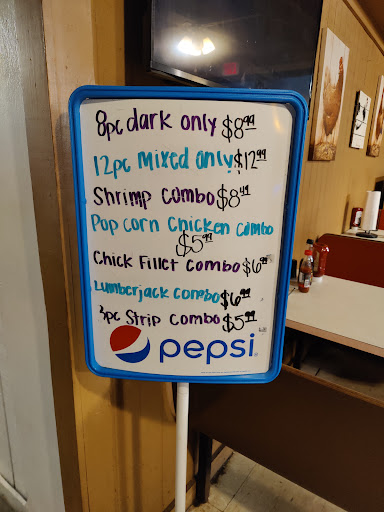 8pc dark only $8.99
12pc Mixed only $12.99
Shrimp combo $8.49
Pop corn Chicken combo
$5.99
Chick Fillet Combo $6.99
Lumberjack combo $6.99
3pc Strip combo $5.99
pepsi